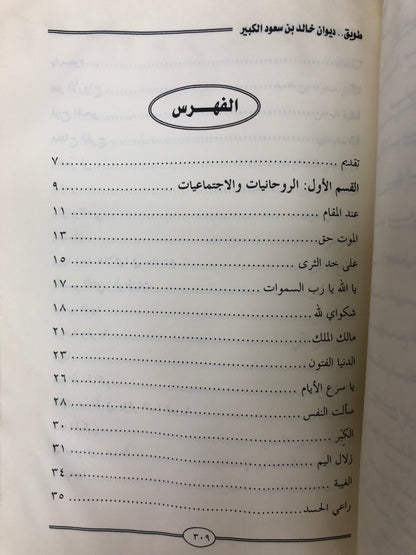 طويق.. ديوان خالد بن سعود الكبير
الفهرس
تقديم ................ ٧
القسم الأول: الروحانيات والاجتماعيات ................ ٩
عند المقام ................ ١١
الموت حق ................ ١٣
على خد الثرى ................ ١٥
يا الله يا رب السموات ................ ١٧
شكواي لله ................ ١٨
مالك الملك ................ ٢١
الدنيا الفتون ................ ٢٣
يا سرع الأيام ................ ٢٦
سألت النفس ................ ٢٨
الكِبَر ................ ٣٠
زلال اليم ................ ٣١
الغيبة ................ ٣٤
راعي الحسد ................ ٣٥
٣٠٩